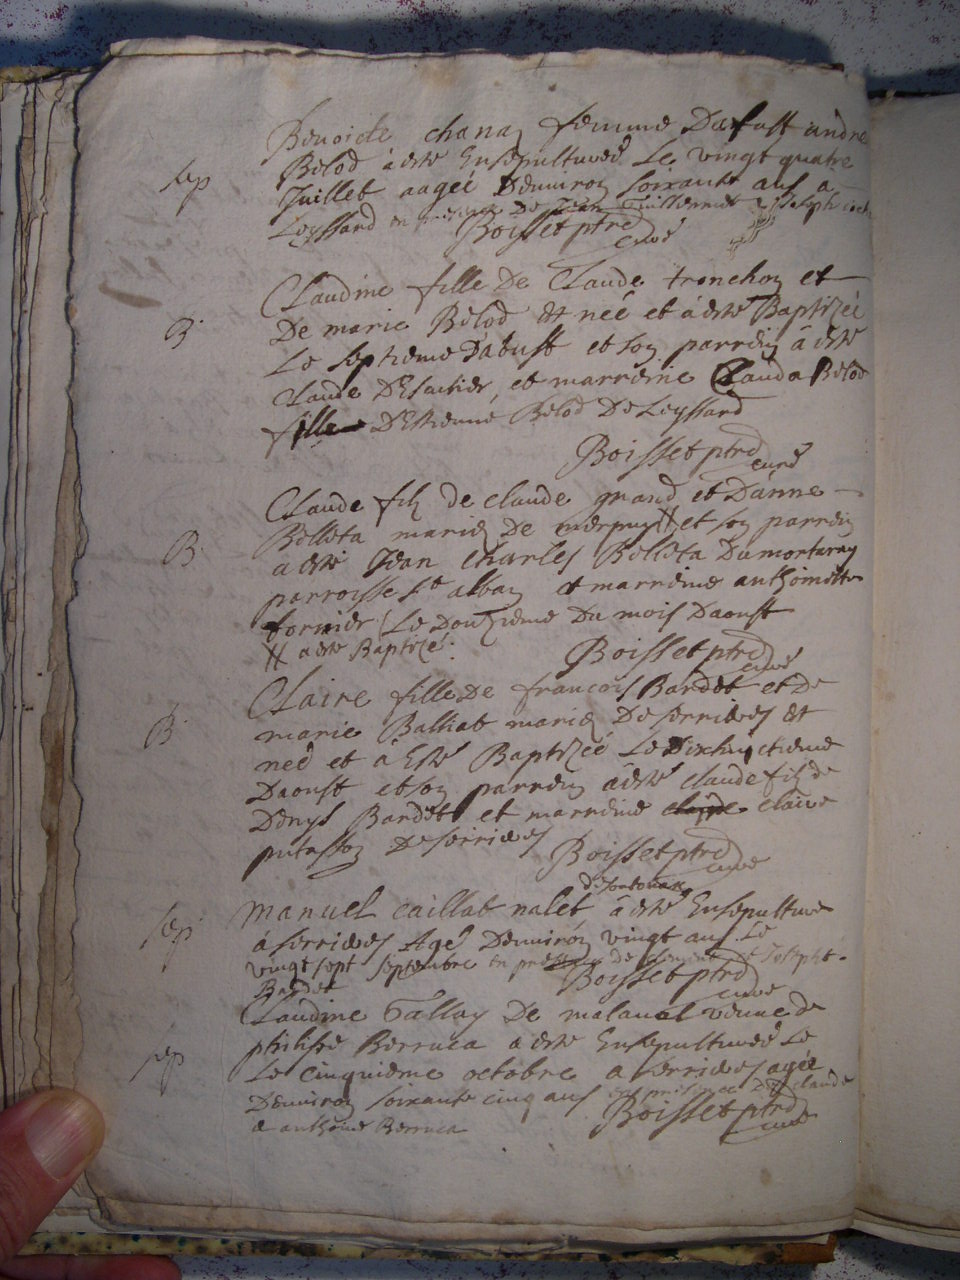 Benoite chanaz femme Defust andre
sep
Belod à esté Ensepulturée Le vingt quatre
Juillet aagée Denviron soixante ans a
Leyssard en presence De Jean Guillermet & Joseph
Boisset ptre curé
Claudine fille De Claude tronchon et
B
De marie Belod Et née et à esté Baptizée
Le septieme Daoust et son parrein à esté
Claude et marreine Clauda Belod
fille D'Estienne Belod De Leyssard
Boisset ptre
curé
Claude filz de claude grand et D'anne
B
Belleta mariez De merpuys # et son parrein
a esté Jean Charles Belleta Du mortaray
parroisse St alban et marreine anthoinette
fornier Le Douzieme Du mois Daoust
# a esté Baptizé
Boisset ptre
curé
Claire fille De francois Bardet et De
B
marie Balliat mariez De serrieres Et
née et à Esté Baptizée Le Dixhuictieme
Daoust et son parrein à esté claude filz de
Denys Bardet et marreine claire
putasson De serrieres
Boisset ptre
curé
manuel caillat valet à esté Ensepulturé
sep
à serrieres Agé Denviron vingt ans Le
vingt sept septembre en presence de et Josepht
Bardet
Boisset ptre
curé
Claudine Vallay De malaval veuve de
philipe Berruca a esté Ensepulturée Le
sep
Le cinquieme octobre a serrieres agée
Denviron soixante cinq ans en presence De claude
& anthoine Berruca
Boisset ptre
curé